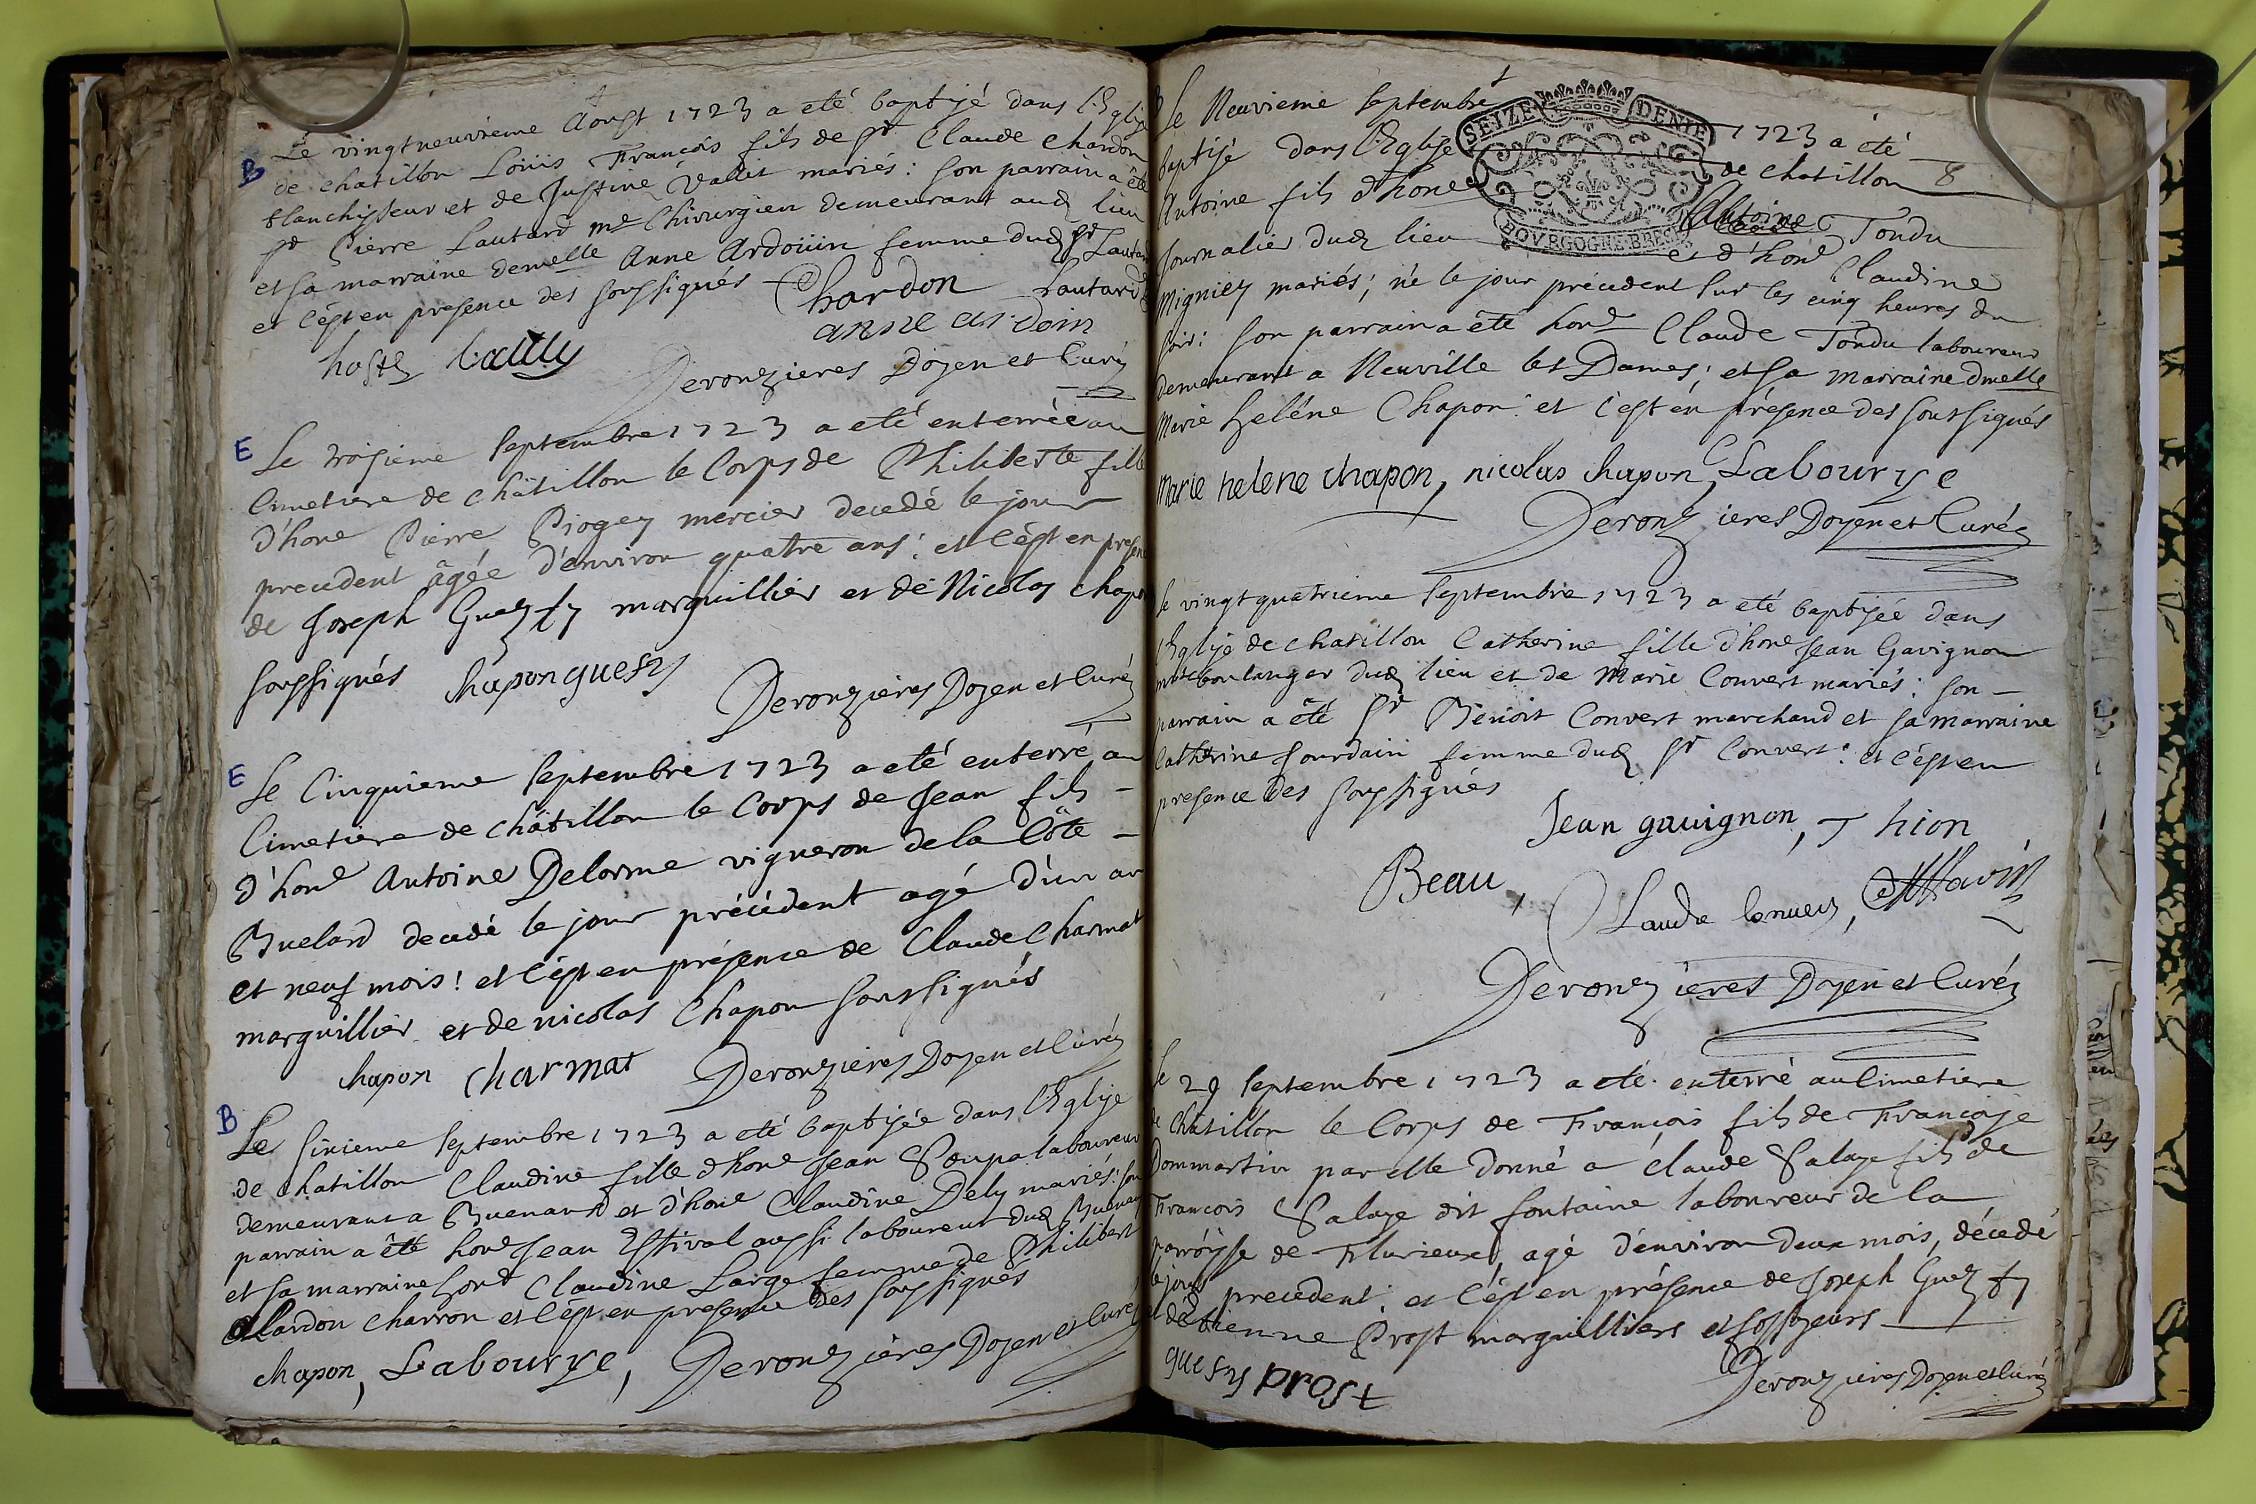 Le vingtneuvieme Aoust 1723 a eté baptisé dans l'Eglise
de chatillon Loüis François fils de Sr Claude Chardon
blanchisseur et de Justine Vallit mariés: son parrain a été
Sr Pierre Lautard me Chirurgien demeurant aud lieu
et sa marraine demelle Anne Ardoüin femme dud Sr Lautard
et c'est en presence des soussignés Chardon Lautard
anne ardoin
hoste bailly
Deronzieres Doyen et Curé
E Le troisieme Septembre 1723 a eté enterrée au
Cimetiere de Châtillon le Corps de Philiberte fille
d'hone Pierre Piogey mercier decedé le jour
precedent âgée d'environ quatre ans: et c'est en presence
de Joseph Guesty marguillier et de Nicolas Chapon
soussignés chapon guesty Deronzieres Doyen et Curé
E Le Cinquieme Septembre 1723 a eté enterré au
Cimetiere de Châtillon le Corps de Jean fils -
d'hone Antoine Delorme vigneron de la Côte -
Buelard decedé le jour précédent agé d'un an
et neuf mois: et c'est en présence de Claude Charmat
marguillier et de nicolas Chapon soussignés
chapon charmat Deronzieres Doyen et Curé
B Le sixieme Septembre 1723 a eté baptisée dans l'Eglise
de chatillon Claudine fille d'hone Jean Soupa laboureur
demeurant a Buenand et d'hone Claudine Dely mariés: son
parrain a été hone Jean Estival aussi laboureur dud Buenand
et sa marraine hone Claudine Large femme de Philibert
Alardon charron et c'est en presence des soussignés
chapon, Labourye, Deronzières Doyen et Curé
B
Le Neuvieme Septembre 1723 a été
baptisé dans l'Eglise de chatillon 8
Antoine fils d'hone Antoine Tondu
SEIZE DENIE
BOVRGOGNE BRESE
Journalier dud lieu et d'hone Claudine
Migniey mariés; né le jour précedent sur les cinq heures du
soir: son parrain a été hone Claude Tondu laboureur
demeurant a Neuville les Dames; et sa marraine dmelle
Marie Heléne Chapon: et c'est en présence des soussignés
Marie helene chapon, nicolas chapon, Labourye
Deronzieres Doyen et Curé
Le vingt quatrieme Septembre 1723 a eté baptisée dans
l'Eglise de chatillon Catherine fille d'hone Jean Gavignon
me boulanger dud lieu et de Marie Convert mariés: son -
parrain a été Sr Benoit Convert marchand et sa marraine
Catherine Jourdain femme dud Sr Convert: et c'est en
presence des soussignés
Jean gauignon, Thion
Beau,
Deronzières Doyen et Curé
Le 29 Septembre 1723 a eté enterré au Cimetiere
de Chatillon le Corps de François fils de Françoise
Dommartin par elle donné a claude Salaye fils de
François Salaye dit fontaine laboureur de la
parroisse de Flurieux, agé d'environ deux mois, décedé
le jour precedent: et c'est en présence de Joseph Guesty
et d'Etienne Prost marguilliers et fossoyeurs
guesty prost
Deronzieres Doyen et Curé